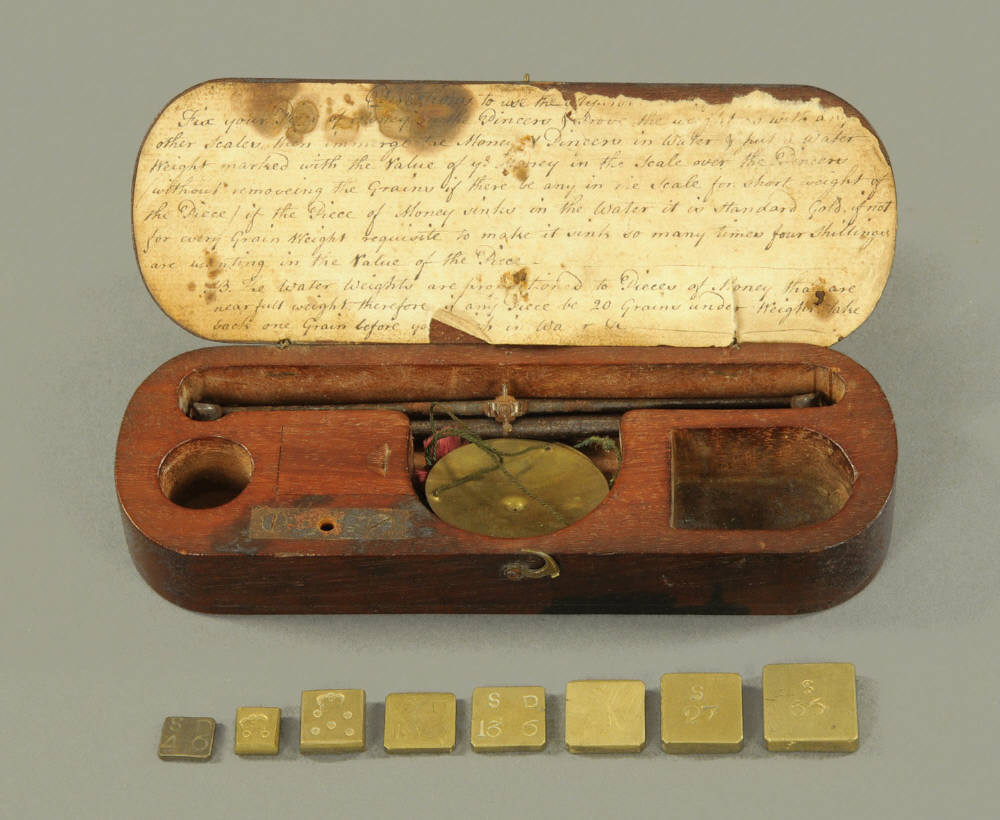 Directions to use the
Fix your Piece of Money in the Pincers & Prove the weight as with any
other Scales, then immerge the Money & Pincers in Water & put a Water
Weight marked with the Value of yᵉ Money in the Scale over the Pincers
without removeing the Grains if there be any in the Scale for short weight of
the Piece / if the Piece of Money sinks in the Water it is Standard Gold, if not
for every Grain Weight requisite to make it sink so many times four Shillings
are wanting in the Value of the Piece
NB The Water Weights are proportioned to Pieces of Money that are
near full weight therefore if any Piece be 20 Grains under Weight take
back one Grain before you in Water
S D
4 6
S D
18 6
S
27
S